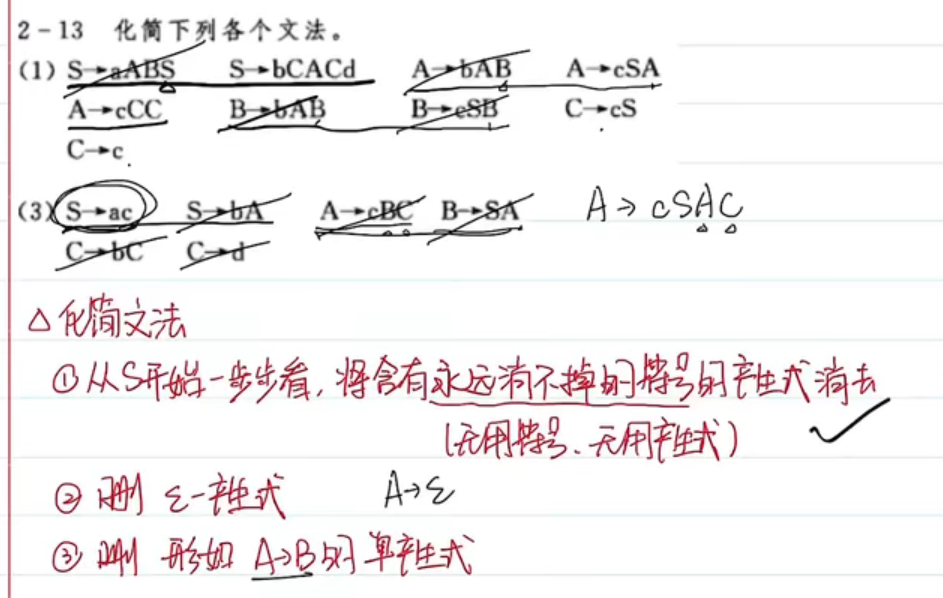 2-13 化简下列各个文法。
(1) S→aABS S→bCACd A→bAB A→cSA
A→cCC B→bAB B→cSB C→cS
C→c
(3) S→ac S→bA A→cBC B→SA A→cSAC
C→bC C→d
△化简文法
①从S开始一步步看,将含有永远消不掉的符号的产生式消去
(无用符号、无用产生式)
②删 ε-产生式 A→ε
③删 形如 A→B的单产生式